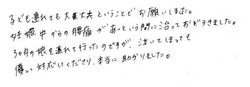 子ども連れでも大丈夫ということでお願いしました。
妊娠中からの腰痛があっという間に治っておどろきました。
3か月の娘を連れて行ったのですが、泣いてしまっても
優しい対応いてくださり、本当に助かりました。